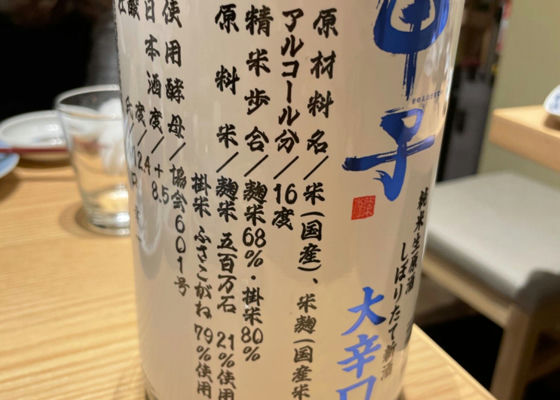 甲子
純米生原酒
しぼりたて新酒
大辛口
原材料名／米(国産)、米麹(国産米
アルコール分／16度
精米歩合／麹米68%・掛米80%
原料米／麹米 五百万石 21%使用
掛米 ふさこがね 79%使用
使用酵母／協会601号
日本酒度／+8.5
酸度／2.4